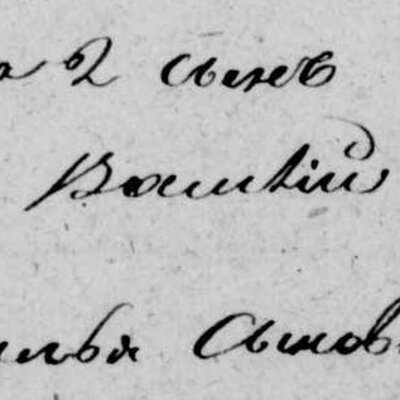 2 сынъ
Василій
илья Сынов